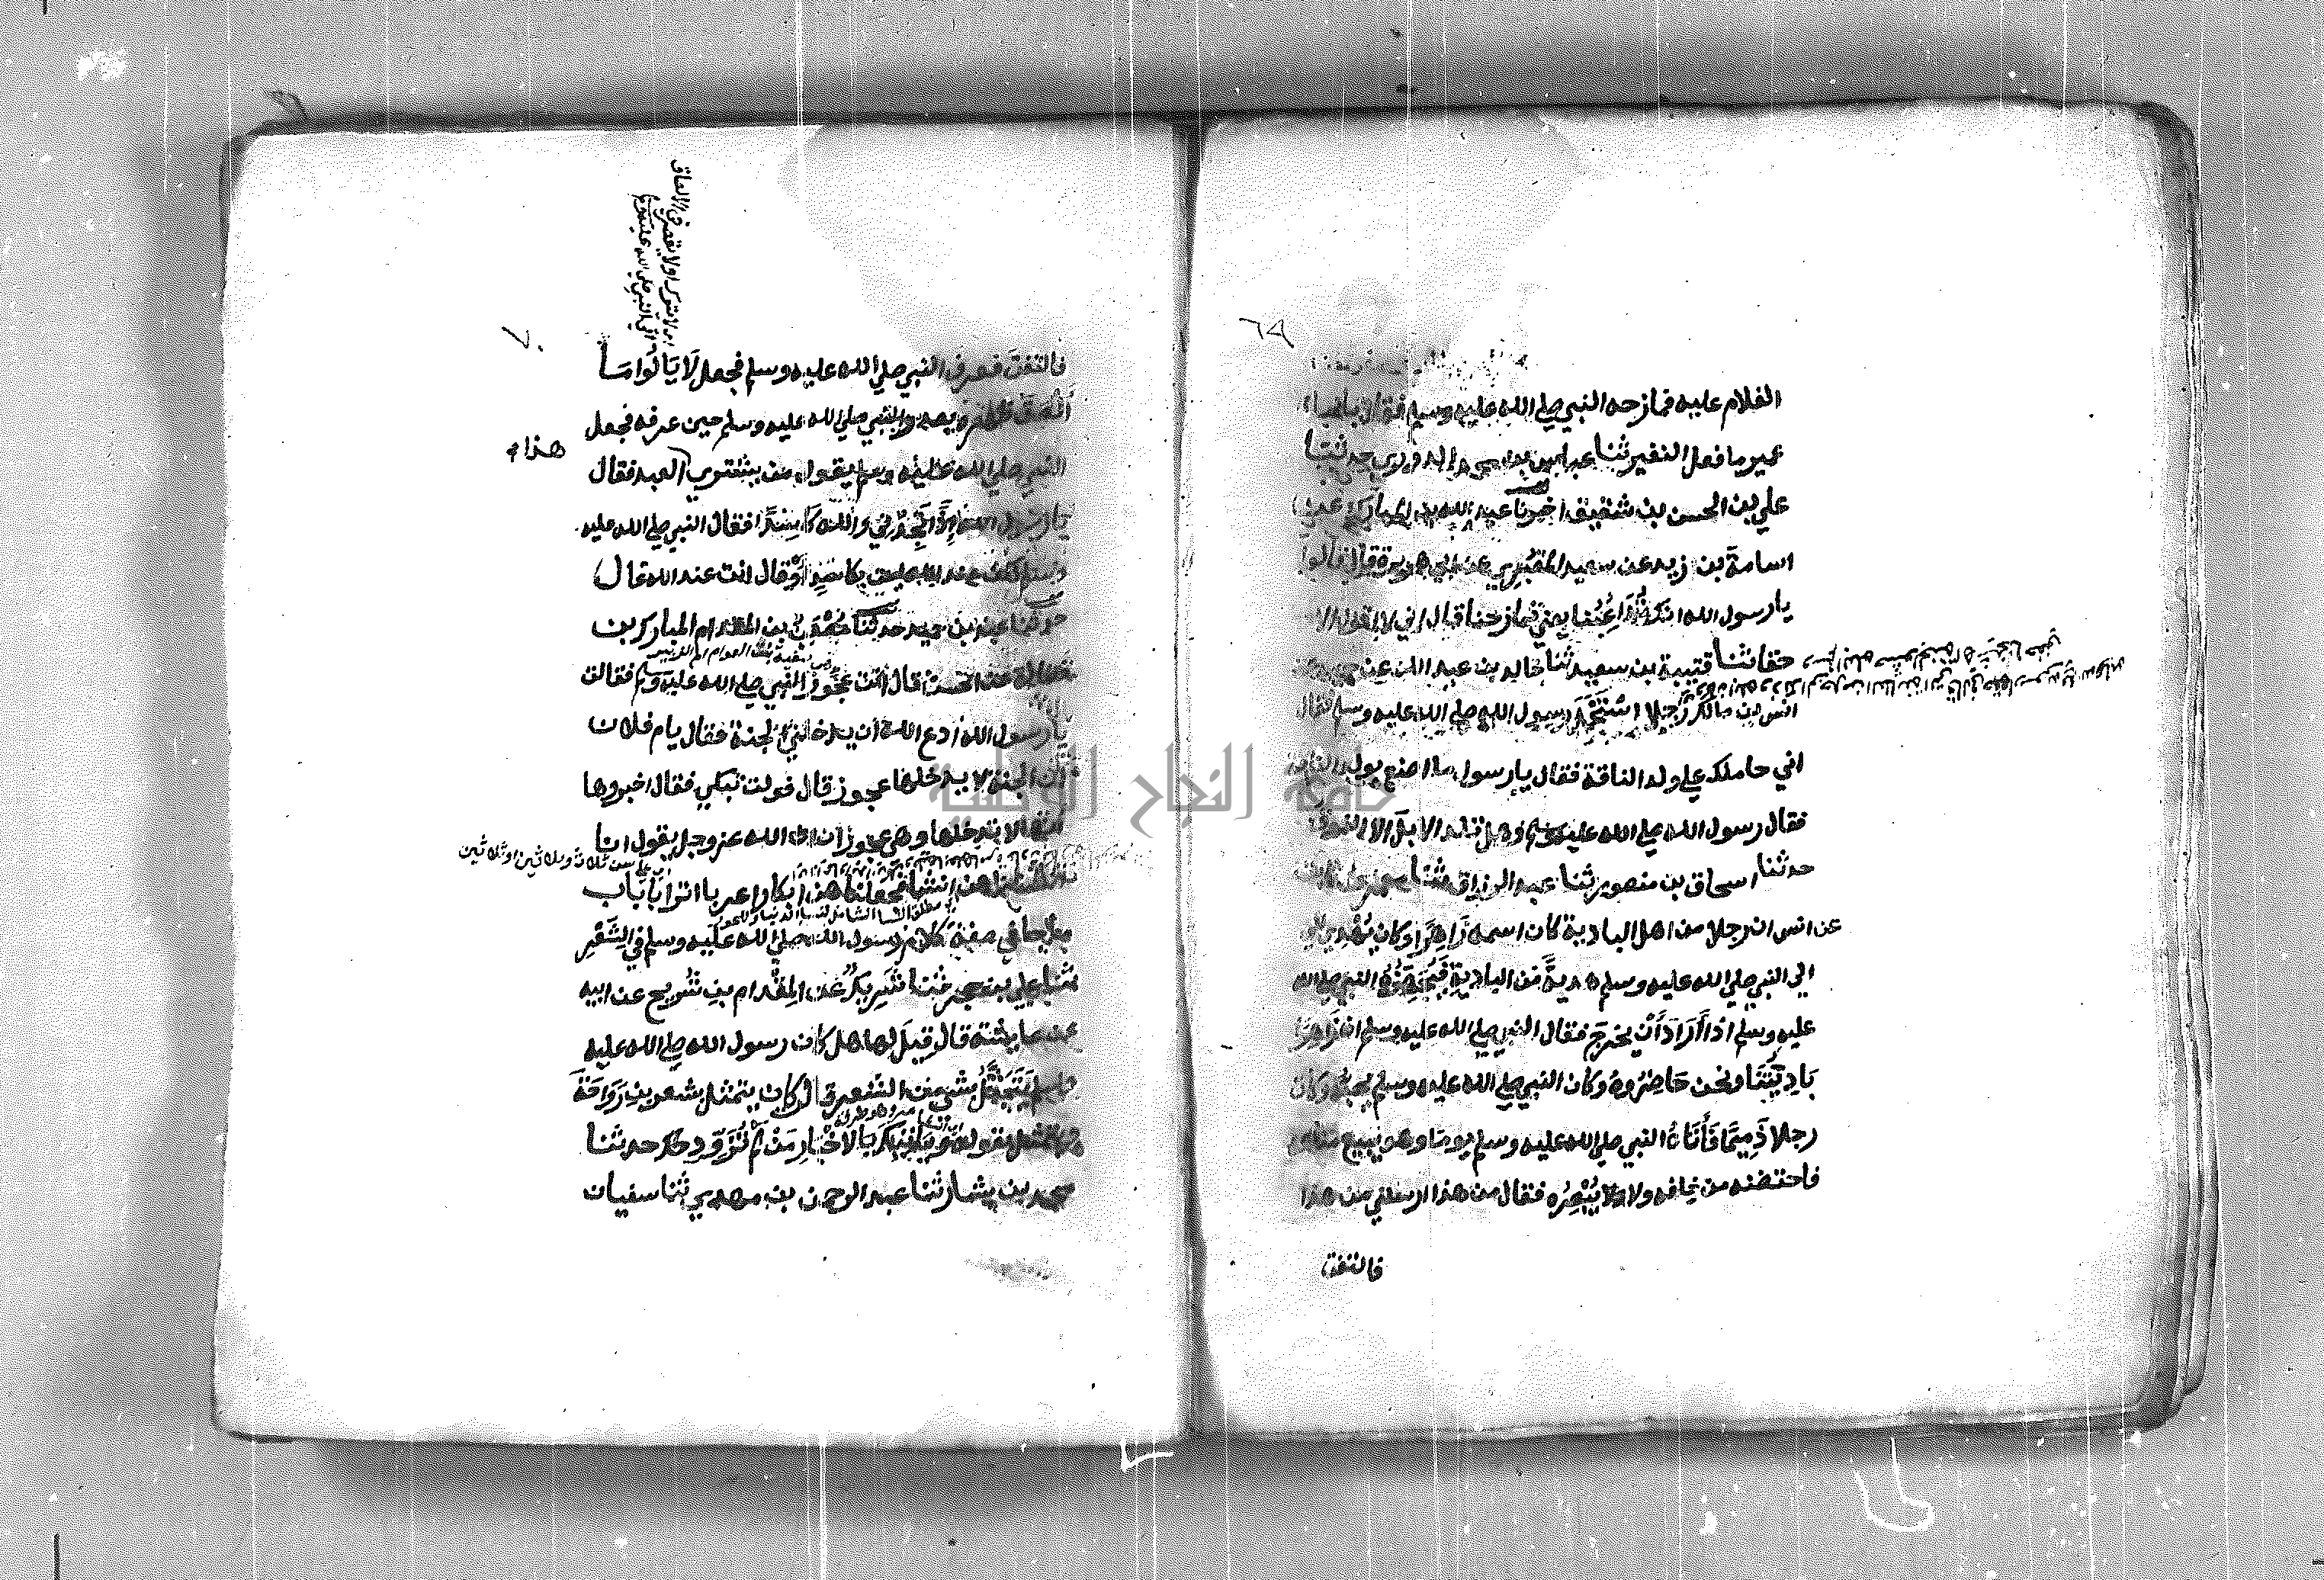 ٦٩
الغلام عليه فمازحه النبي صلي الله عليه وسلم فقال يا ابا
عمير ما فعل النغير ثنا عباس بن محمد الدوري حدثنا
علي بن الحسن بن شقيق اخبرنا عبد الله بن المبارك عن
اسامة بن زيد عن سعيد المقبري عن ابي هريرة قال قالوا
يا رسول الله انك تداعبنا يعني تمازحنا قال اني لا اقول الا
حقا ثنا قتيبة بن سعيد ثنا خالد بن عبد الله عن
انس بن مالك رجلا استحمل رسول الله صلي الله عليه وسلم فقال
اني حاملك علي ولد الناقة فقال يا رسول ما اصنع بولد الناقة
فقال رسول الله صلي الله عليه وسلم وهل تلد الابل الا النوق
حدثنا اسحاق بن منصور ثنا عبد الرزاق ثنا
عن انس ان رجلا من اهل البادية كان اسمه زاهرا وكان يهدي
الي النبي صلي الله عليه وسلم هدية من البادية فيجهزه النبي صلي الله
عليه وسلم اذا اراد أن يخرج فقال النبي صلي الله عليه وسلم ان زاهرا
باديتنا ونحن حاضروه وكان النبي صلي الله عليه وسلم يحبه وكان
رجلا ذميما فأتاه النبي صلي الله عليه وسلم يوما وهو يبيع متاعه
فاحتضنه من خلفه ولا يبصره فقال من هذا ارسلني من هذا
فالتفت
٧٠
فالتفت فعرف النبي صلي الله عليه وسلم فجعل لا يألوا ما
ألصق ظهره بصدر النبي صلي الله عليه وسلم حين عرفه فجعل
هذا م
النبي صلي الله عليه وسلم يقول من يشتري العبد فقال
يا رسول الله إذا تجدني والله كاسدا فقال النبي صلي الله عليه
وسلم لكن عند الله لست بكاسد أو قال انت عند الله غال
حدثنا عبد بن حميد حدثنا مصعب بن المقدام المبارك بن
فضالة عن الحسن قال اتت عجوز النبي صلي الله عليه وسلم فقالت
يا رسول الله ادع الله ان يدخلني الجنة فقال يام فلان
ان الجنة لا يدخلها عجوز قال فولت تبكي فقال اخبروها
انها لا تدخلها وهي عجوز ان الله عز وجل يقول انا
انشأناهن انشا فجعلناهن ابكارا عربا اترابا باب
ما جا في صفة كلام رسول الله صلي الله عليه وسلم في الشعر
ثنا علي بن حجر ثنا شريك عن المقدام بن شريح عن ابيه
عن عايشة قال قيل لها هل كان رسول الله صلي الله عليه
وسلم يتمثل بشي من الشعر قال كان يتمثل بشعر بن رواحة
ويتمثل بقوله ويأتيك بالاخبار من لم تزود حدثنا
محمد بن بشار ثنا عبد الرحمن بن مهدي ثنا سفيان
جامعة النجاح الوطنية